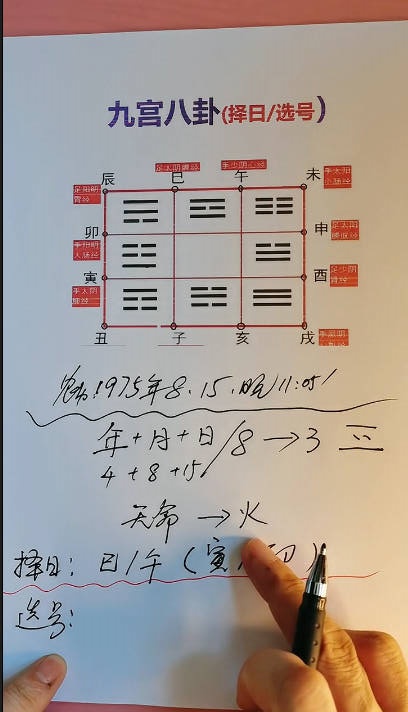 九宫八卦(择日/选号)
足太阴脾经 手少阴心经
辰 巳 午 未
足阳明胃经 手太阳小肠经
卯 申
手阳明大肠经 足太阳膀胱经
寅 酉
手太阴肺经 足少阴肾经
丑 子 亥 戌
1975年8.15.晚11:05
年+月+日/8→3 三
4+8+15
天命→火
择日:巳/午(寅/卯)
选号: